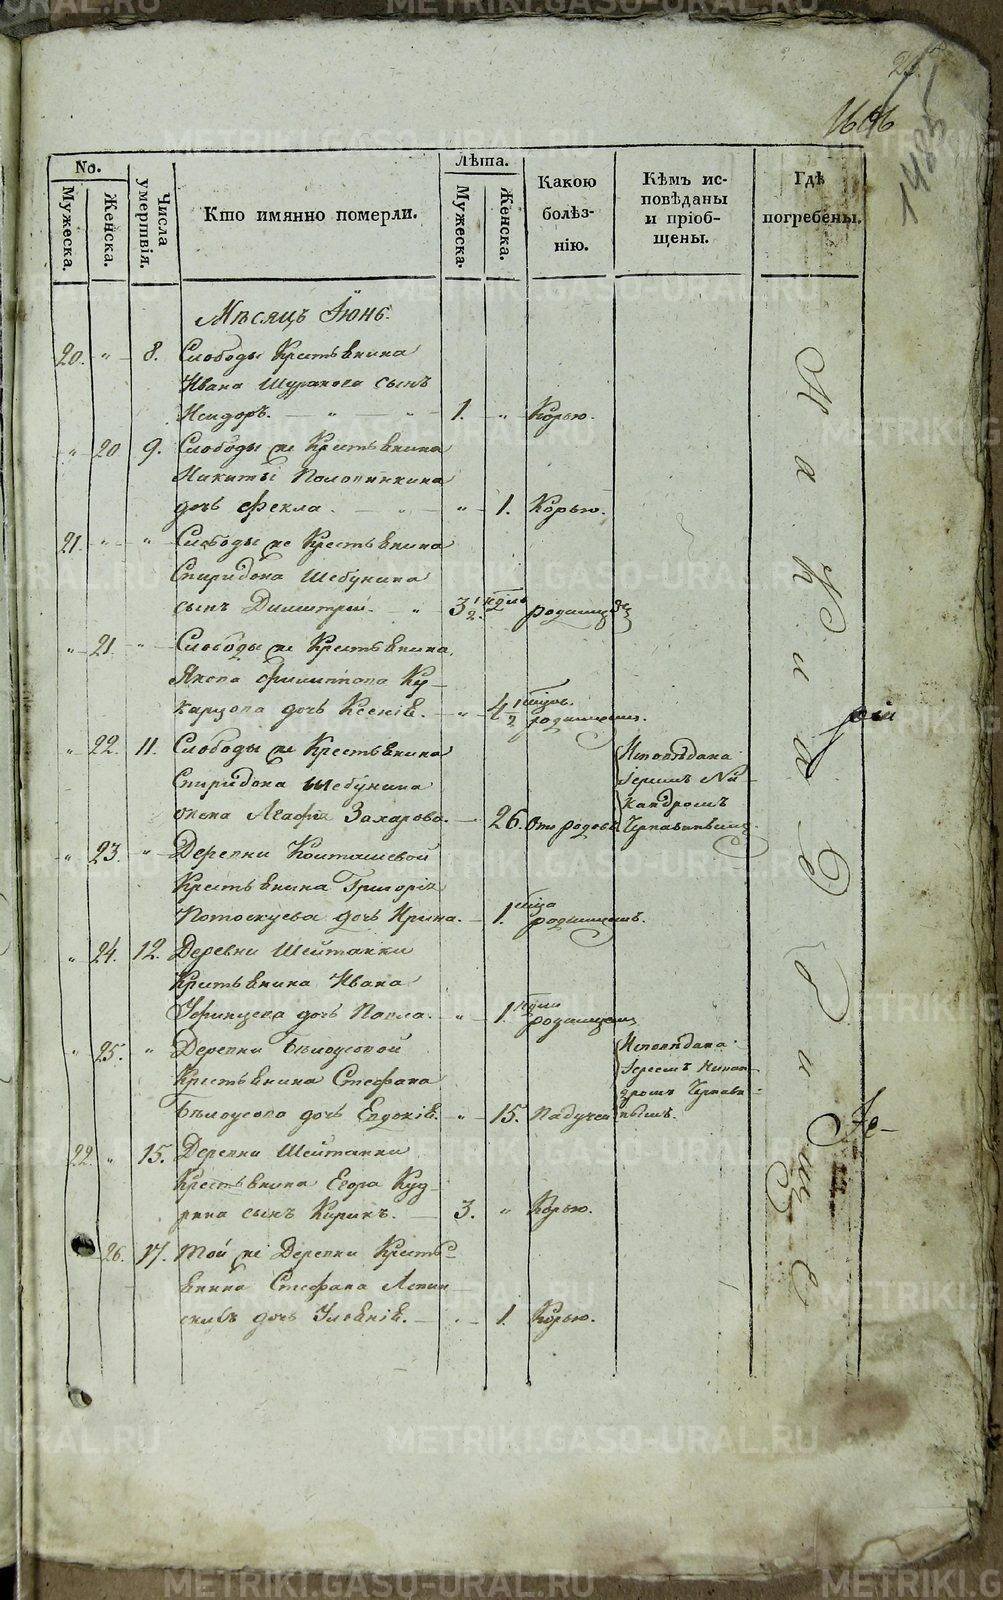 1646
1483
No.
Мужеска.
Женска.
Числа умертвія.
Кто имянно померли.
Лѣта.
Мужеска.
Женска.
Какою болѣз-
нію.
Кѣмъ ис-
повѣданы
и пріоб-
щены.
Гдѣ
погребены.
Мѣсяцъ Іюнь.
20. " 8. Слободы Крестьянина
Ивана Шуракова сынъ
Исидоръ. " " 1. " Корью.
" 20 9. Слободы же Крестьянина
Никиты Пологинкина
дочь Фекла. " " 1. Корью.
21. " " Слободы же Крестьянина
Спиридона Шебунина
сынъ Димитрій. " 3 1/2 недѣль родимцемъ
" 21. " Слободы же Крестьянина
Якова Филиппова Ку-
карцова дочь Ксенія. " 4 1/2 родимцемъ.
" 22. 11. Слободы же Крестьянина
Спиридона Шебунина
жена Агафія Захарова. 26. Отъ родовъ
Исповѣдана
Іереемъ Ни-
кандромъ
" 23. " Деревни Конташевой
Крестьянина Григорія
Потоскуева дочь Ирина. 1. мѣсца родимцемъ.
" 24. 12. Деревни Шейтанки
Крестьянина Ивана
Уфинцева дочь Павла. " 1. недѣли родимцемъ
" 25. " Деревни Бѣлоусовой
Крестьянина Стефана
Бѣлоусова дочь Евдокія. " 15. Падучей
Исповѣдана
Іереемъ Никан-
дромъ
22. " 15. Деревни Шейтанки
Крестьянина Егора Куд-
рина сынъ Кирикъ. 3. " Корью.
26. 17. Той же Деревни Кресть-
янина Стефана
дочь Уліянія. " 1. Корью.
На Кладбище
METRIKI.GASO-URAL.RU